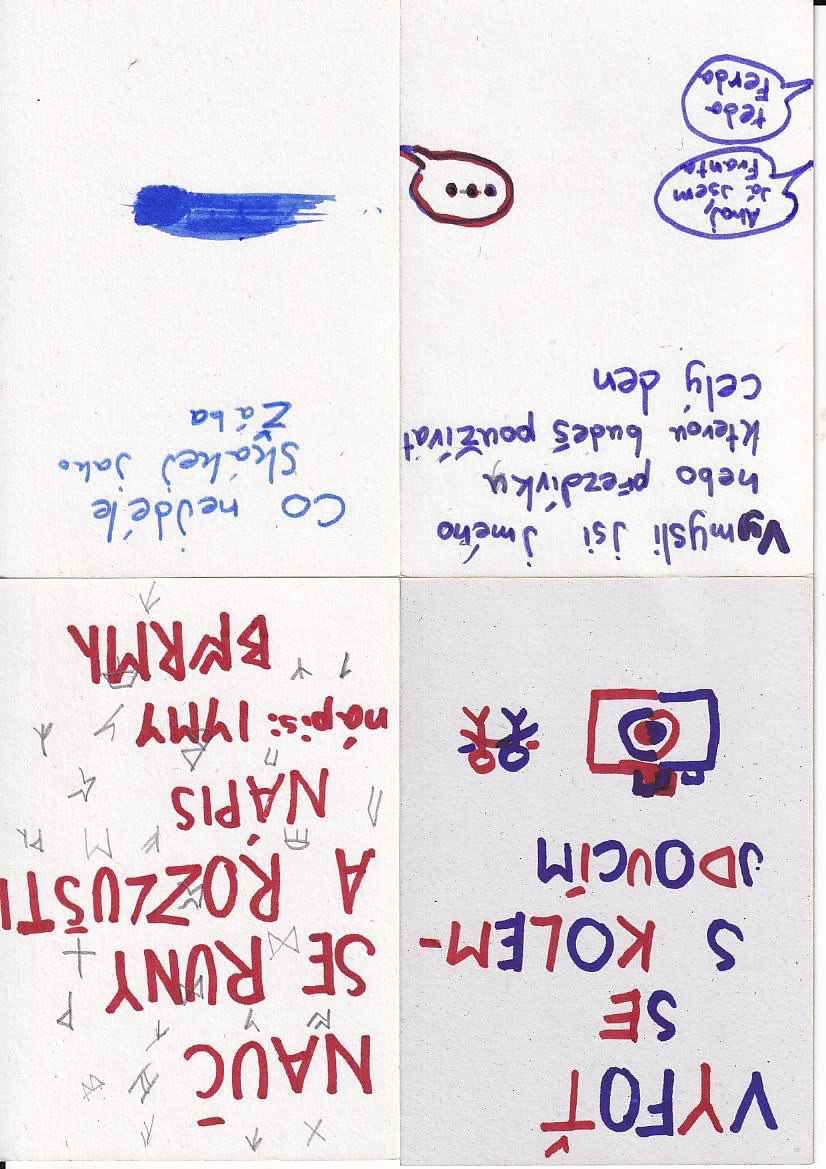 VYFOŤ
SE
S KOLEM-
JDOUCÍM
NAUČ
SE RUNY
A ROZLUŠTI
NÁPIS
nápis:
Vymysli jsi jméno
nebo přezdívku
kterou budeš používat
celý den
Ahoj,
Já jsem
Franta
teda
Ferda
...
Co nejdéle
Skákej jako
Žába